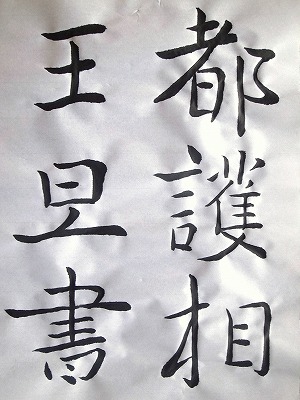 都護相
王旦書